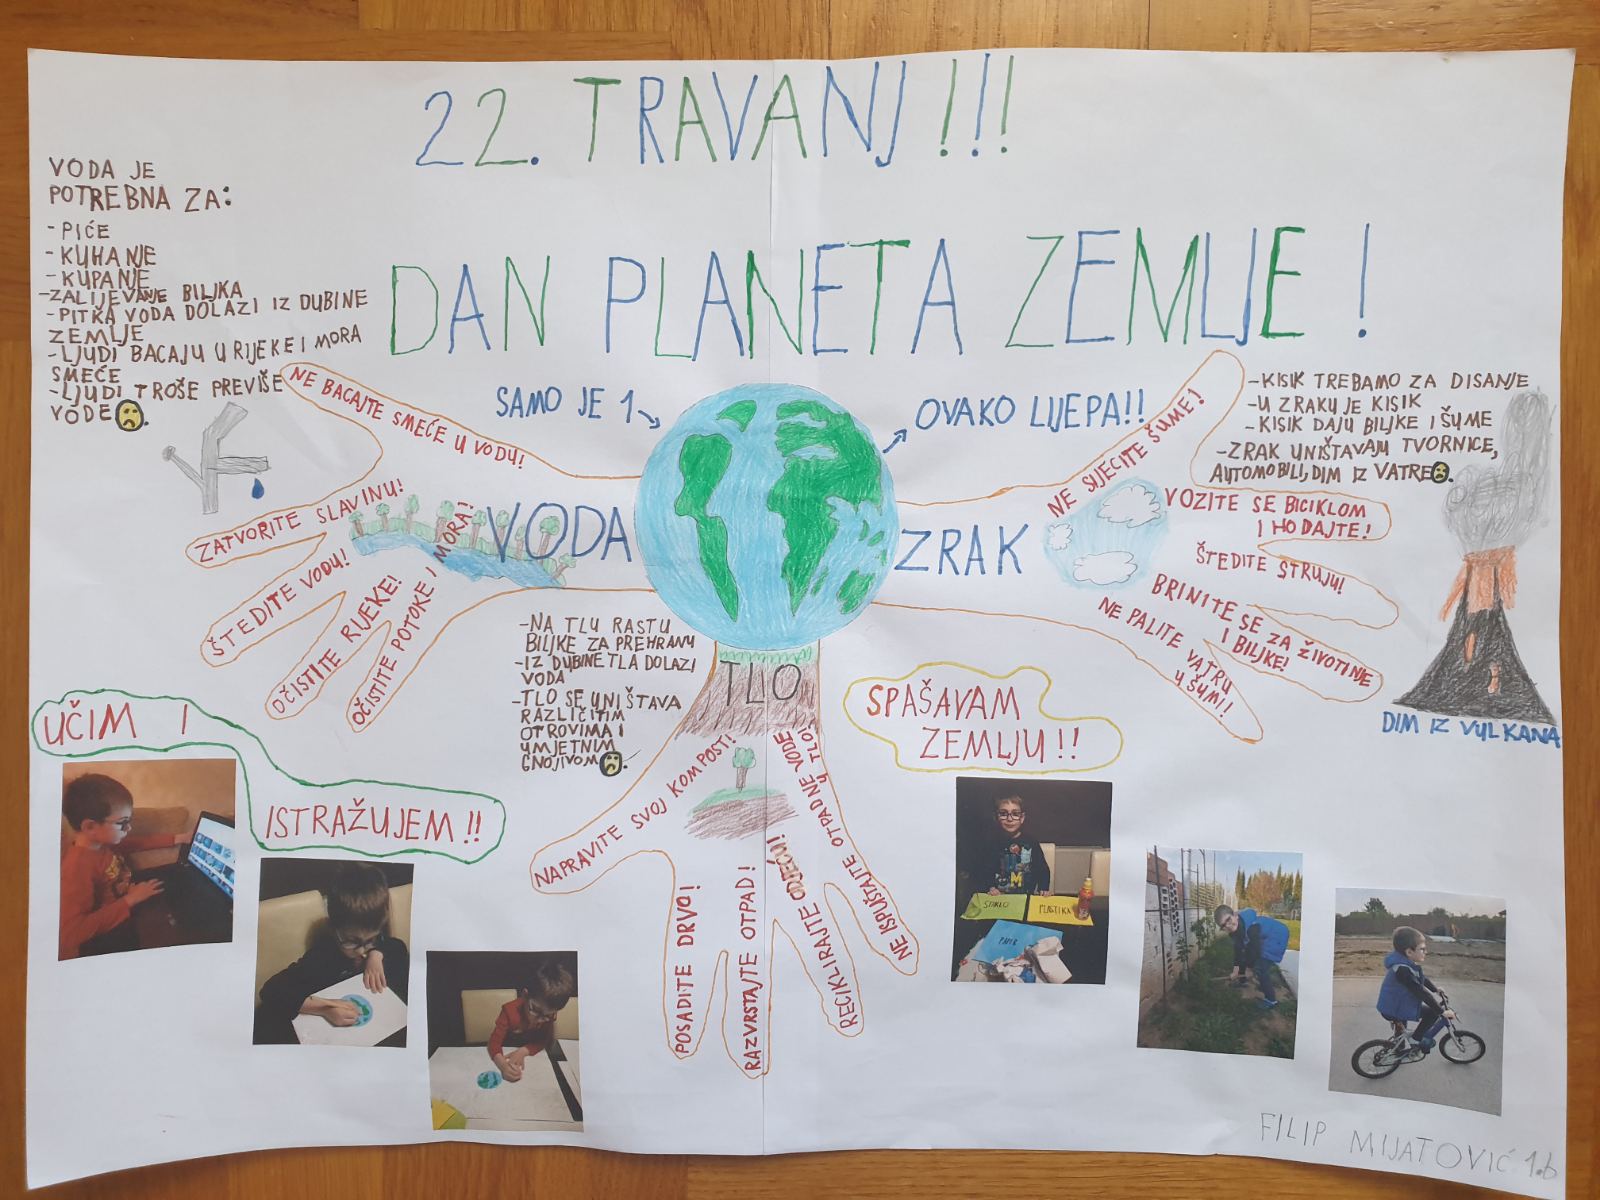 22. TRAVANJ!!!
DAN PLANETA ZEMLJE!
VODA JE
POTREBNA ZA:
-PIĆE
-KUHANJE
-KUPANJE
-ZALIJEVANJE BILJKA
-PITKA VODA DOLAZI IZ DUBINE
ZEMLJE
-LJUDI BACAJU U RIJEKE I MORA
SMEĆE
-LJUDI TROŠE PREVIŠE
VODE
SAMO JE 1
OVAKO LIJEPA!!
-KISIK TREBAMO ZA DISANJE
-U ZRAKU JE KISIK
-KISIK DAJU BILJKE I ŠUME
-ZRAK UNIŠTAVAJU TVORNICE,
AUTOMOBILI, DIM IZ VATRE
NE BACAJTE SMEĆE U VODU!
ZATVORITE SLAVINU!
ŠTEDITE VODU!
OČISTITE RIJEKE!
OČISTITE POTOKE I
MORA!
VODA
ZRAK
NE SIJECITE ŠUME!
VOZITE SE BICIKLOM
I HODAJTE!
ŠTEDITE STRUJU!
BRINITE SE ZA ŽIVOTINJE
I BILJKE!
NE PALITE VATRU
U ŠUMI!!
DIM IZ VULKANA
-NA TLU RASTU
BILJKE ZA PREHRANU
-IZ DUBINE TLA DOLAZI
VODA
-TLO SE UNIŠTAVA
RAZLIČITIM
OTROVIMA I
UMJETNIM
GNOJIVOM
TLO
NAPRAVITE SVOJ KOMPOST!
POSADITE DRVO!
RAZVRSTAJTE OTPAD!
RECIKLIRAJTE ODJEĆU!
NE ISPUŠTAJTE OTPADNE VODE
U TLO!
UČIM I
ISTRAŽUJEM!!
SPAŠAVAM
ZEMLJU!!
STAKLO
PLASTIKA
PAPIR
FILIP MIJATOVIĆ 1.b